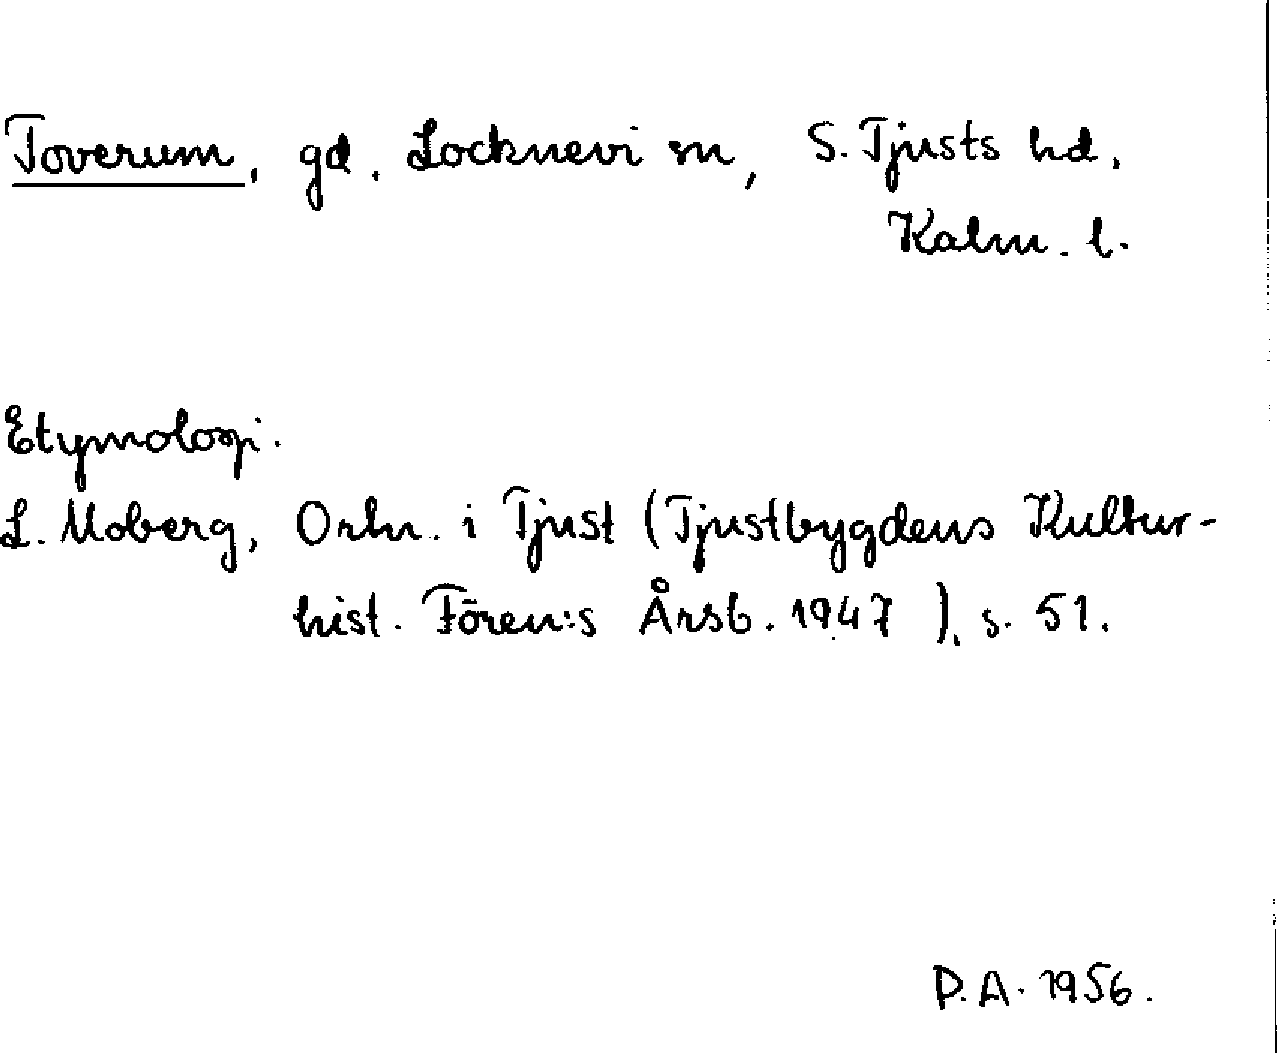 Toverum, gd. Locknevi sn, S. Tjusts hd,
Kalm. l.
Etymologi.
L. Moberg, Ortn. i Tjust (Tjustbygdens Kultur-
hist. Fören:s Årsb. 1947), s. 51.
D.A. 1956.